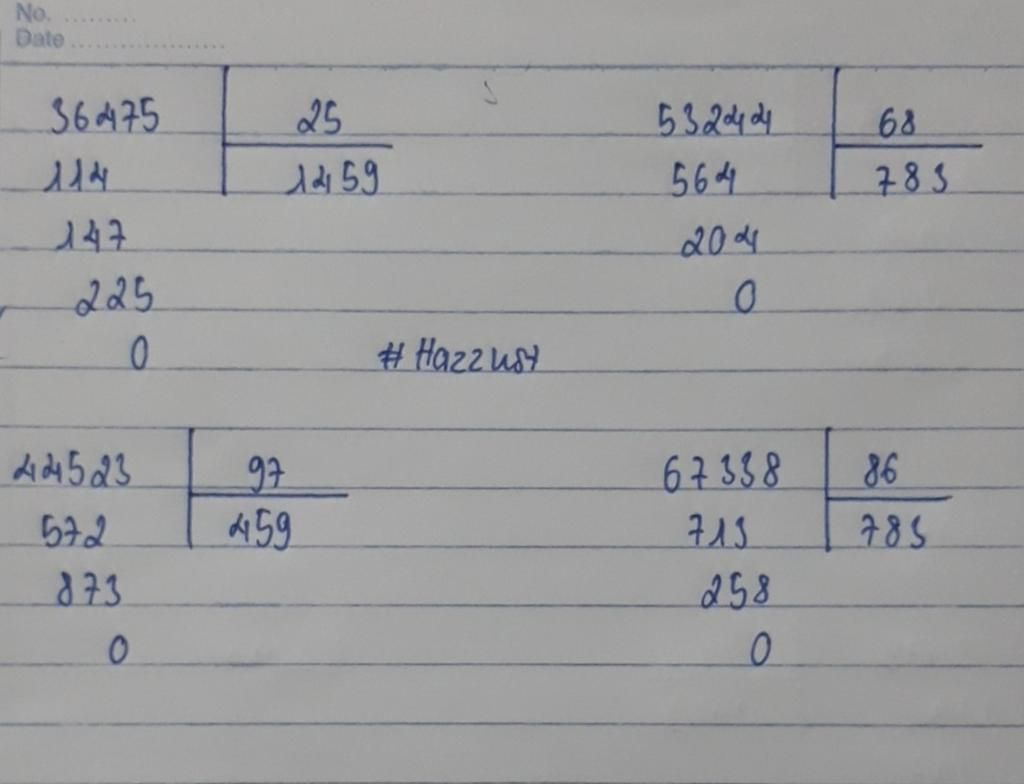 No. .........
Date ...................
36475 25
114 1459
147
225
0
53244 68
564 783
204
0
#Hazzusy
44523 97
572 459
873
0
67338 86
713 783
258
0